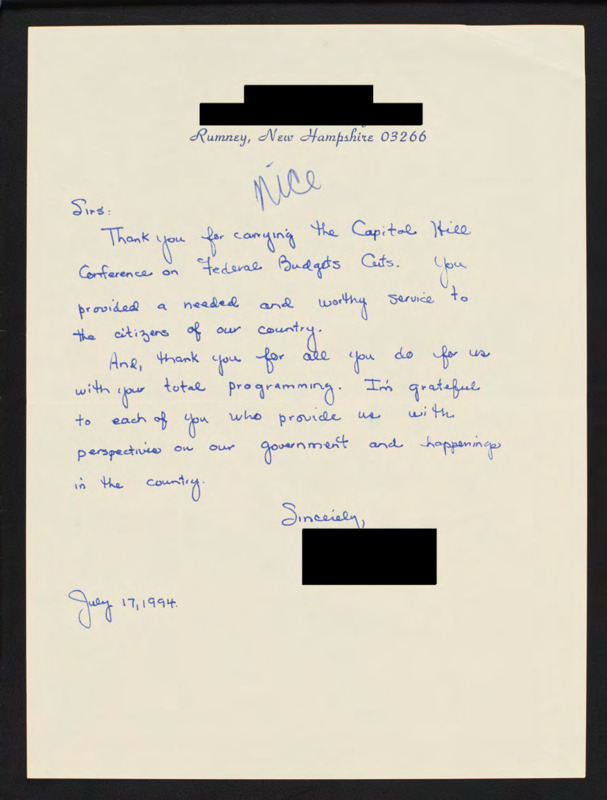 Rumney, New Hampshire 03266
Nice
Sirs:
Thank you for carrying the Capitol Hill
Conference on Federal Budgets Cuts. You
provided a needed and worthy service to
the citizens of our country.
And, thank you for all you do for us
with your total programming. I'm grateful
to each of you who provide us with
perspective on our government and happenings
in the country.
Sincerely,
July 17, 1994.